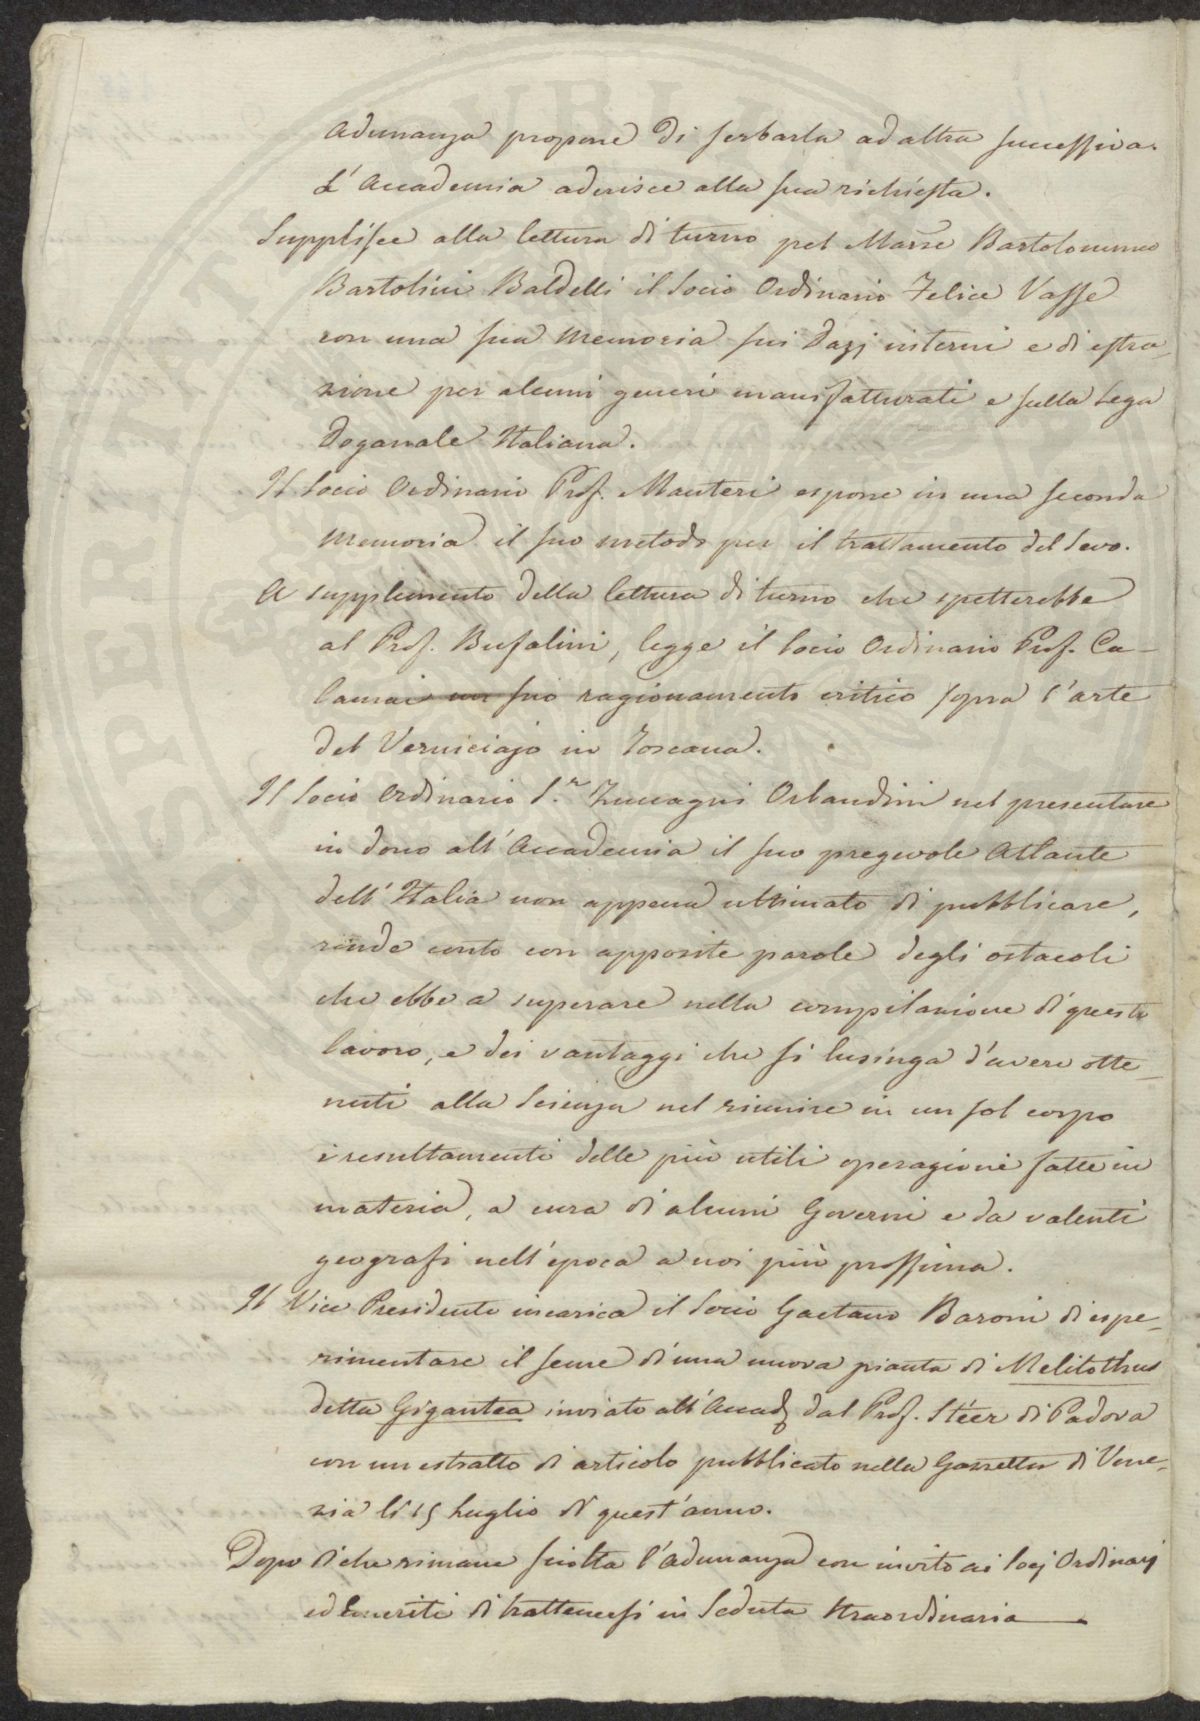 Adunanza propone di serbarla ad altra successiva.
L'Accademia aderisce alla sua richiesta.
Supplisce alla lettura di turno pel Marse Bartolommeo
Bartolini Baldelli il Socio Ordinario Felice Vasse
con una sua Memoria sui Dazj interni e di estra-
zione per alcuni generi manifatturati e sulla Lega
Doganale Italiana.
Il Socio Ordinario Prof. Manteri espone in una seconda
Memoria il suo metodo per il trattamento del Sevo.
A supplemento della lettura di turno che spetterebbe
al Prof. Bufalini, legge il Socio Ordinario Prof. Ca-
lamai un suo ragionamento critico sopra l'arte
del Verniciajo in Toscana.
Il Socio Ordinario S.r Zuccagni Orlandini nel presentare
in dono all'Accademia il suo pregevole Atlante
dell'Italia non appena ultimato di pubblicare,
rende conto con apposite parole degli ostacoli
che ebbe a superare nella compilazione di questo
lavoro, e dei vantaggi che si lusinga d'avere otte-
nuti alla Scienza nel riunire in un sol corpo
i resultamenti delle più utili operazioni fatte in
materia, a cura di alcuni Governi e da valenti
geografi nell'epoca a noi più prossima.
Il Vice Presidente incarica il Socio Gaetano Baroni di espe-
rimentare il seme d'una nuova pianta di Melitothus
detta Gigantea inviato all'Accad. dal Prof. Stéer di Padova
con un estratto di articolo pubblicato nella Gazzetta di Vene-
zia li 15 Luglio di quest'anno.
Dopo di che rimane sciolta l'adunanza con invito ai Socj Ordinarj
ed Emeriti di trattenersi in Seduta Straordinaria.